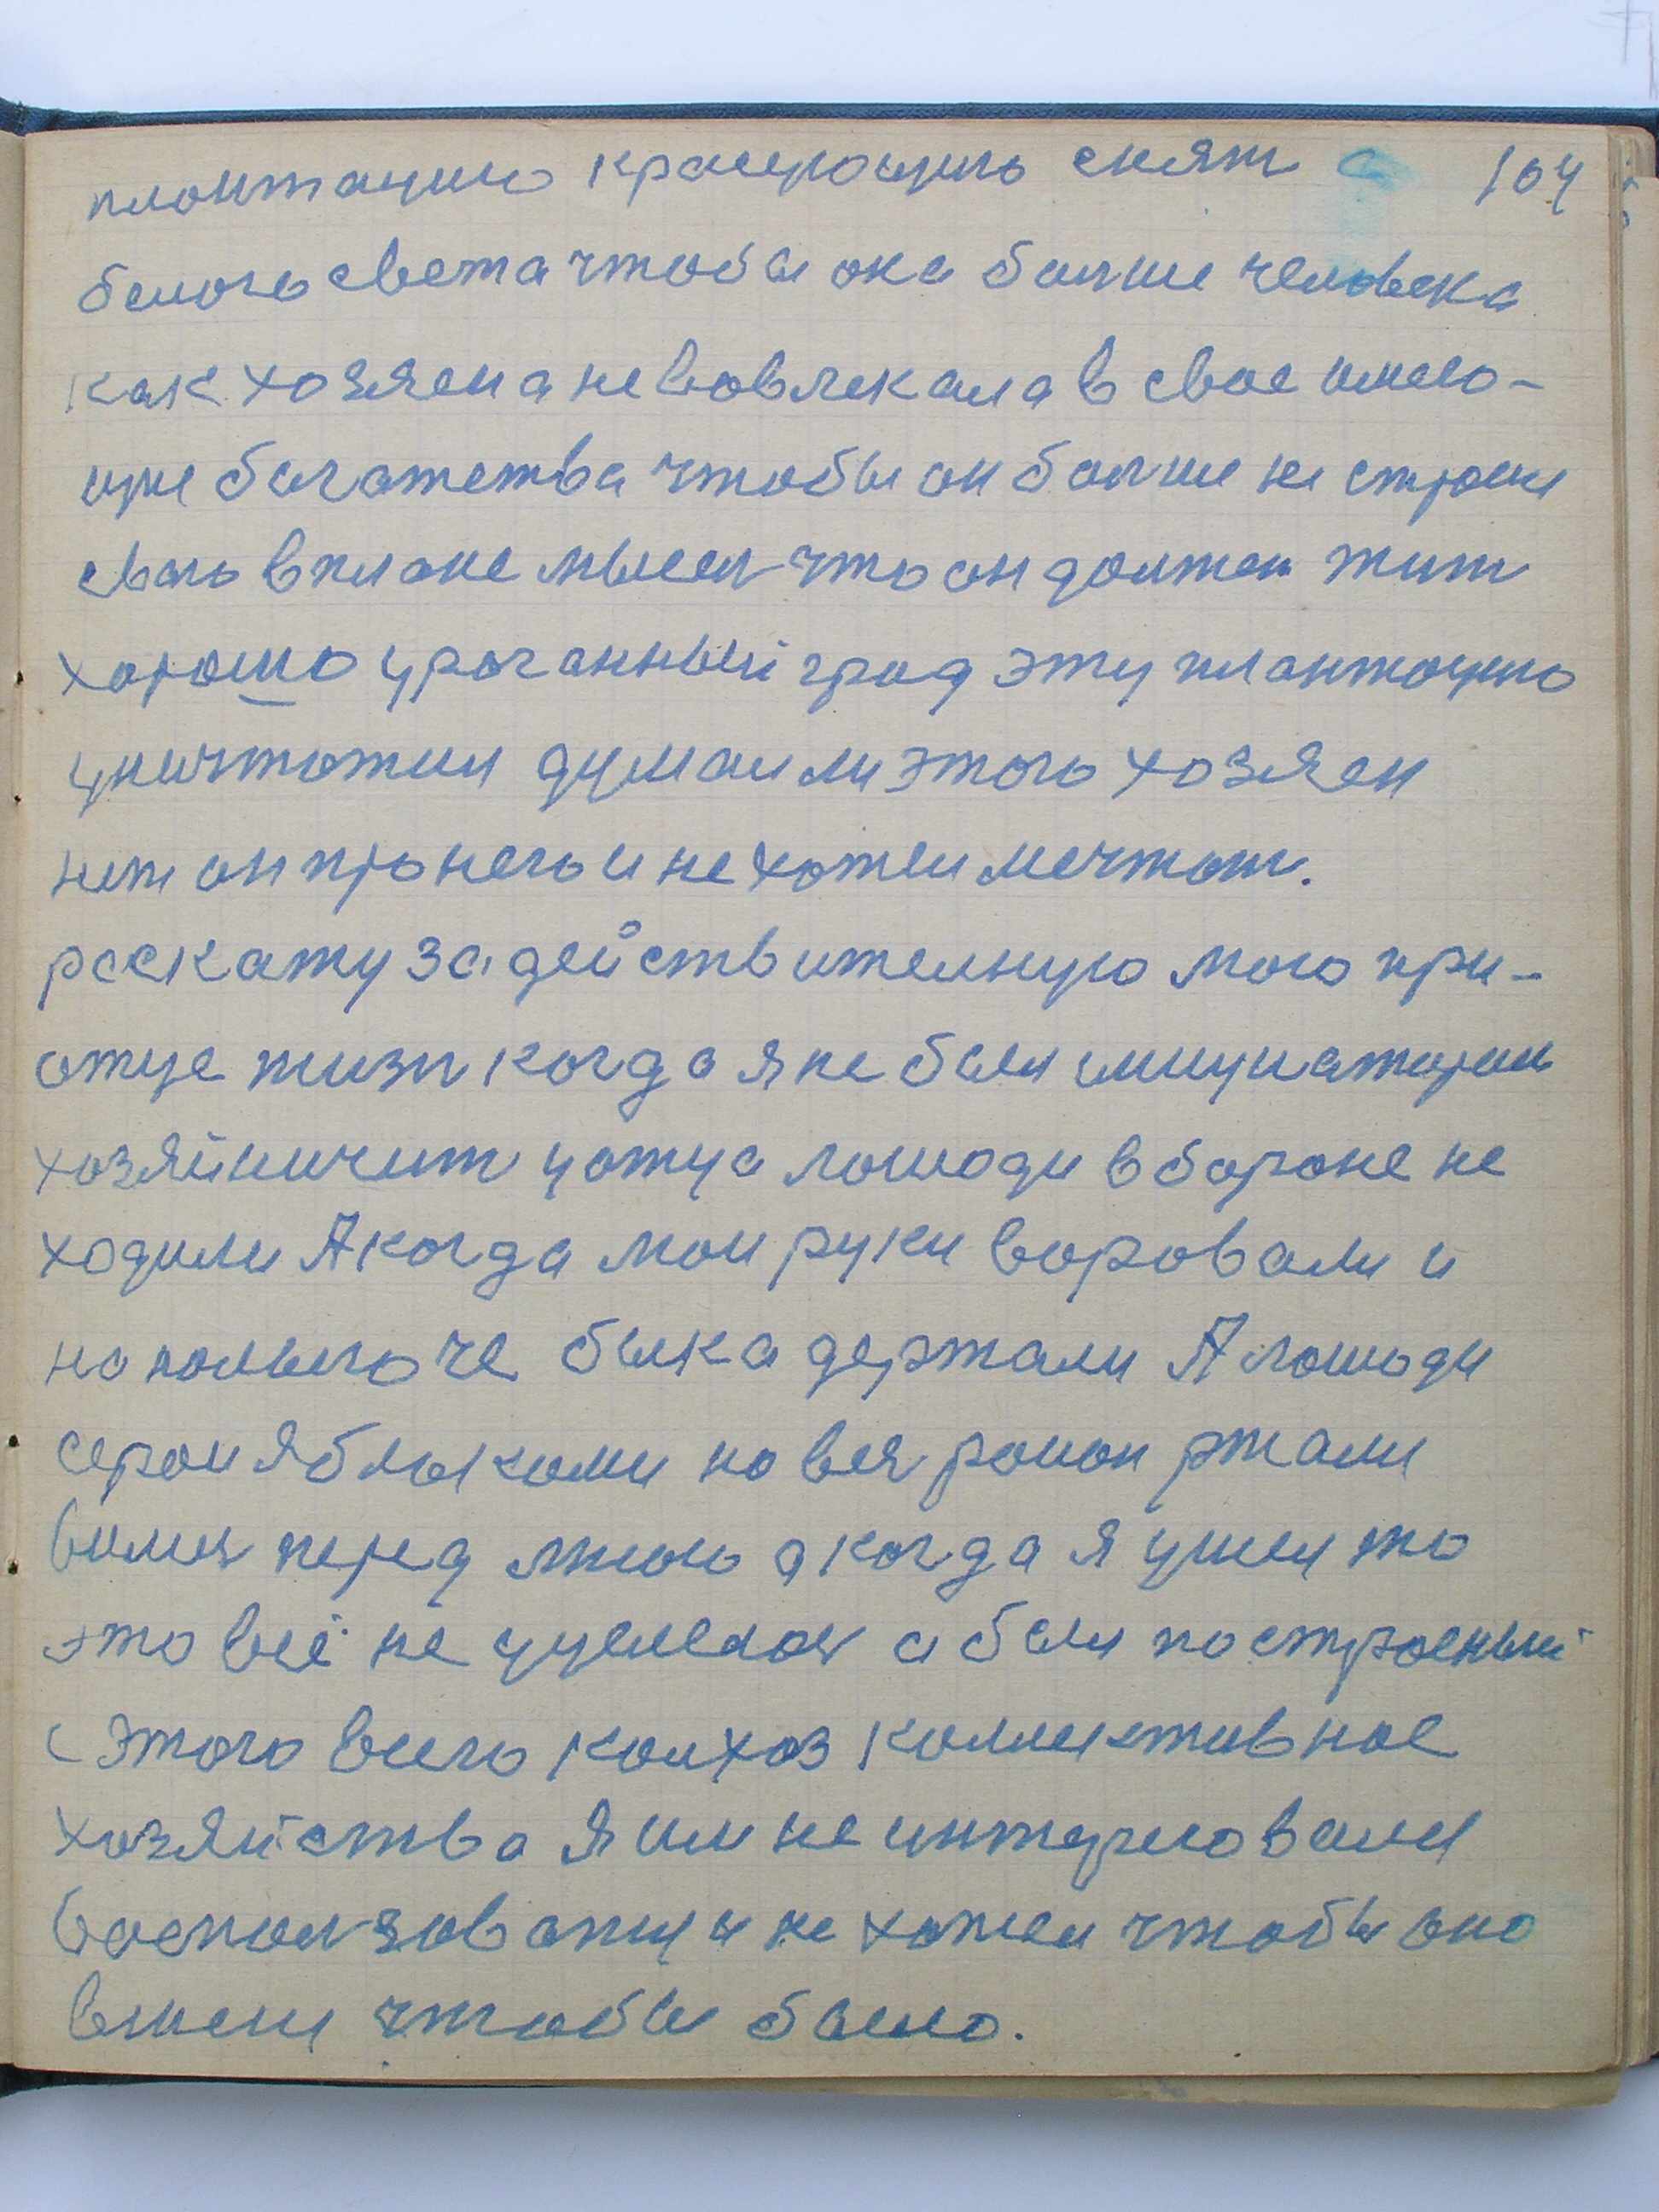 плонтацию красующию снят с 104
белого света чтобы она болше человека
как хозяена невовлекала в свое имею-
щие богатетва чтобы он болше не строил
своъ в плане мысел что он должен жит
хорошо ураганный град эту плантоцию
уничтожил думал ли этого хозяен
нет он про него и не хотел мечтат.
роскажу за действителную мою при-
отце жизн когда я не был инициатором
хозяйничит у отца лошоди в бороне не
ходили А когда мои руки воровали и
на полыгоче быка держали А лошоди
серои яблыками на вес раион ржали
вилис перед мною а когда я ушел то
это всё не уцелелос а был построеный
с этого всего колхоз коллективное
хозяйства я им не интересовался
воспользоватця не хотел чтобы оно
вмене чтобы было.